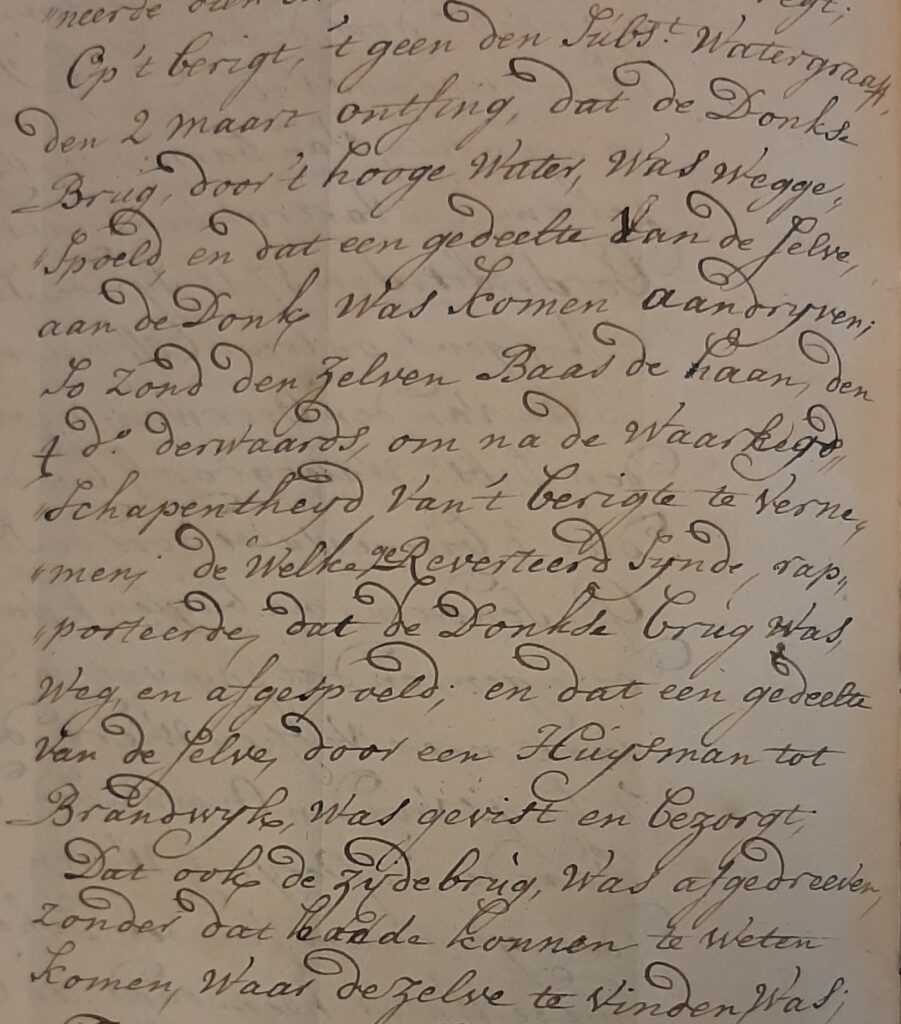 "neerde
Op't berigt, 't geen den Subs.t Watergraaff,
den 2 maart ontfing, dat de Donkse
Brug, door't hooge Water, Was wegge„
„Spoeld, en dat een gedeelte Van de selve,
aan de Donk Was komen aandryven;
So zond den zelven Baas de haan, den
4 do. derwaards, om na de Waar
„Schapentheyd Van't berigte te verne„
„men; de Welke geReverteerd Synde, rap„
„porteerde, dat de Donkse brug Was,
Weg, en afgespoeld; en dat een gedeelte
van de selve, door een Huysman tot
Brandwyk, Was gevist en bezorgt,
Dat ook de zydebrug, Was afgedreeven,
zonder dat hadde konnen te weten
komen, Waar dezelve te vinden Was;